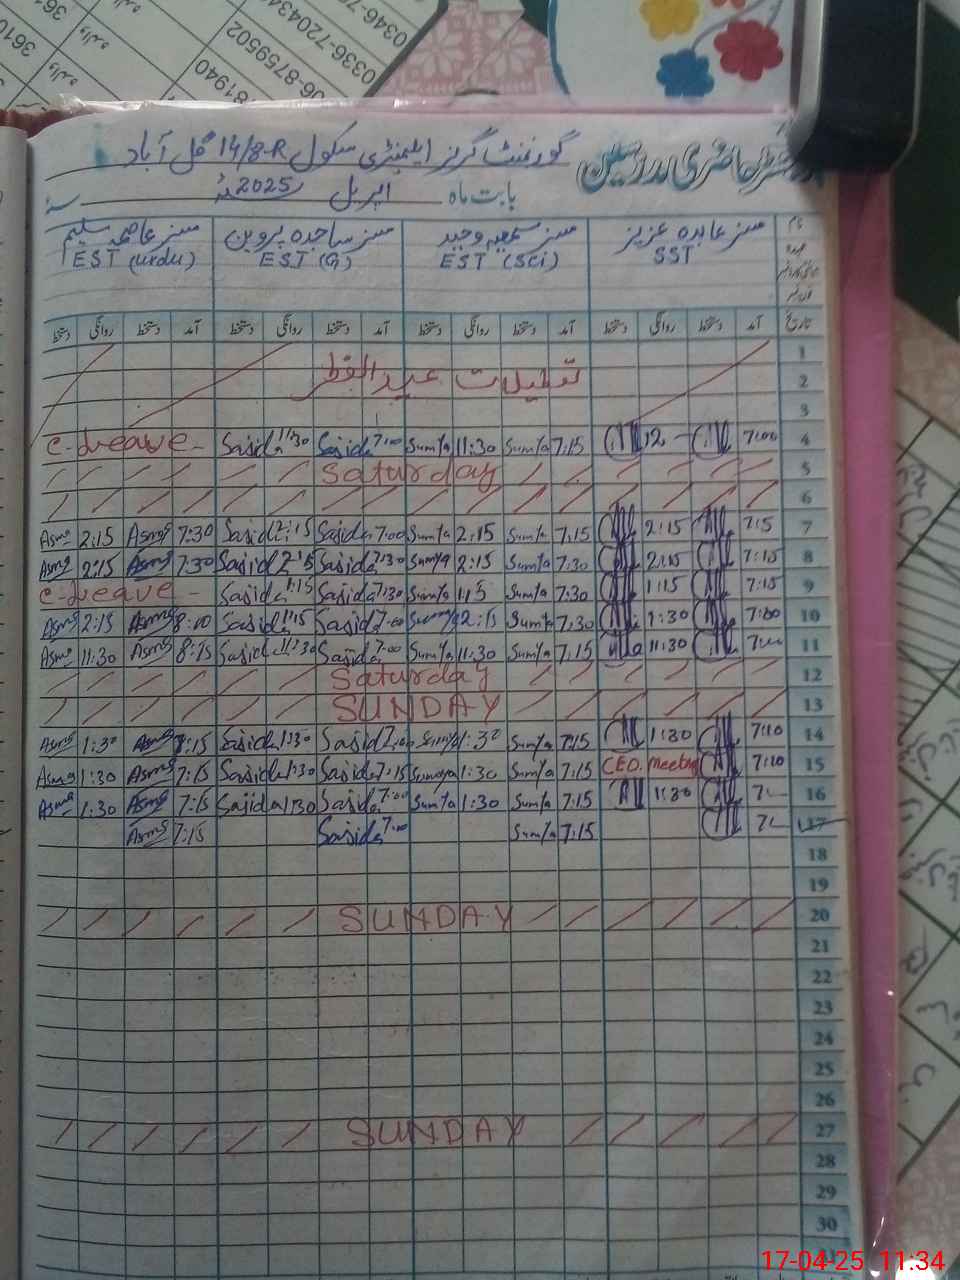 0346-7
0336-720434
06-8759502
81940
3615
رجسٹر حاضری مدرسین
گورنمنٹ گرلز ایلیمنٹری سکول 14/8-R گل آباد
بابت ماہ اپریل 2025ء
نام مسز عابدہ عزیز مسز سمعیہ وحید مسز ساجدہ پروین مسز عاصمہ سلیم
عہدہ SST EST (Sci) EST (G) EST (urdu)
تاریخ آمد دستخط روانگی دستخط آمد دستخط روانگی دستخط آمد دستخط روانگی دستخط آمد دستخط روانگی دستخط
1
2 تعطیلات عیدالفطر
3
C-Leave - Sajida 11:30 Sajida 7:00 Sumya 11:30 Sumya 7:15 12 - 7:00 4
Saturday 5
6
Asma 2:15 Asma 7:30 Sajida 2:15 Sajida 7:00 Sumya 2:15 Sumya 7:15 2:15 7:15 7
Asma 2:15 Asma 7:30 Sajida 2:15 Sajida 7:30 Sumya 2:15 Sumya 7:30 2:15 7:15 8
C-Leave - Sajida 1:15 Sajida 7:30 Sumya 1:15 Sumya 7:30 1:15 7:15 9
Asma 2:15 Asma 8:00 Sajida 1:15 Sajida 7:00 Sumya 2:15 Sumya 7:30 1:30 7:00 10
Asma 11:30 Asma 8:15 Sajida 11:30 Sajida 7:00 Sumya 11:30 Sumya 7:15 11:30 7:00 11
Saturday 12
SUNDAY 13
Asma 1:30 Asma 7:15 Sajida 1:30 Sajida 7:00 Sumya 1:30 Sumya 7:15 1:30 7:10 14
Asma 1:30 Asma 7:15 Sajida 1:30 Sajida 7:15 Sumya 1:30 Sumya 7:15 CEO. Meeting 7:10 15
Asma 1:30 Asma 7:15 Sajida 1:30 Sajida 7:00 Sumya 1:30 Sumya 7:15 1:30 7 - 16
Asma 7:15 Sajida 7:00 Sumya 7:15 7 - 17
18
19
SUNDAY 20
21
22
23
24
25
26
SUNDAY 27
28
29
30
31
17-04-25 11:34